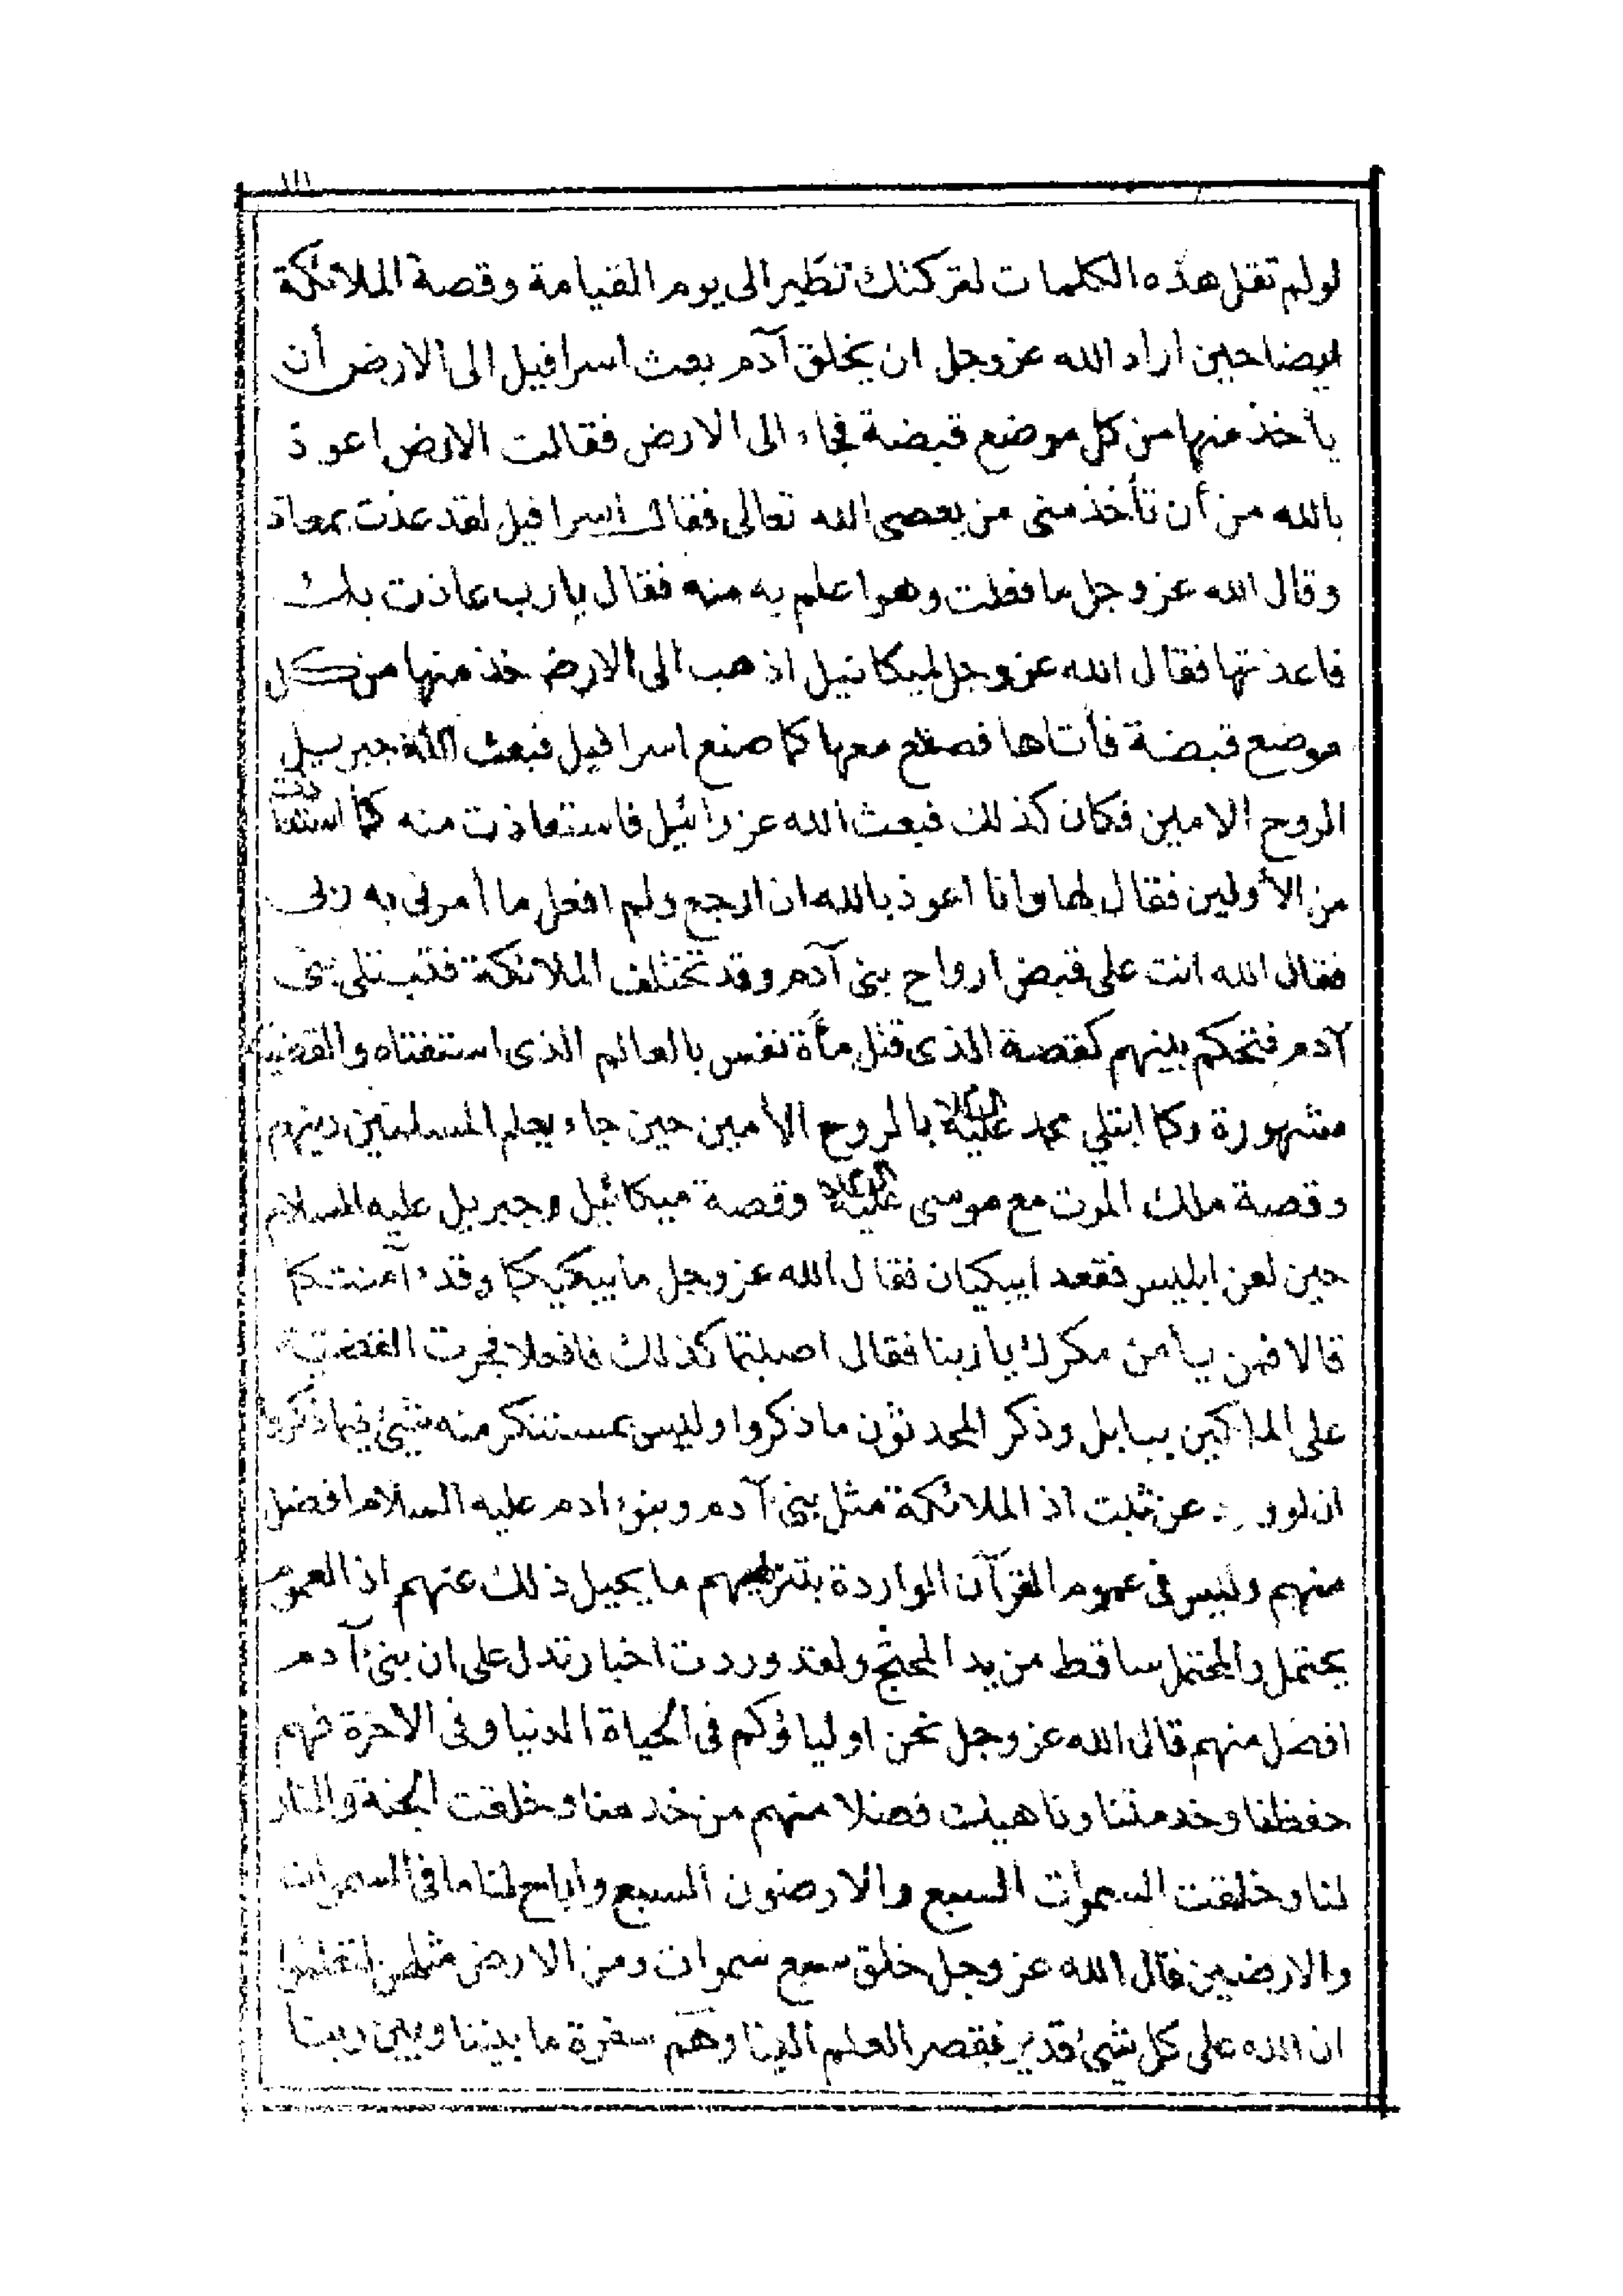 ١١١
لو لم تقل هذه الكلمات لتركتك تطير الى يوم القيامة وقصة الملائكة
ايضا حين اراد الله عز وجل ان يخلق آدم بعث اسرافيل الى الارض أن
يأخذ منها من كل موضع قبضة فجاء الى الارض فقالت الارض اعوذ
بالله من أن تأخذ منى من يعصى الله تعالى فقال اسرافيل لقد عذت بمعاذ
وقال الله عز وجل ما فعلت وهو اعلم به منه فقال يا رب عاذت بك
فاعذتها فقال الله عز وجل لميكائيل اذهب الى الارض خذ منها من كل
موضع قبضة فأتاها فصنع معها كما صنع اسرافيل فبعث الله جبريل
الروح الامين فكان كذلك فبعث الله عزرائيل فاستعاذت منه كما استعاذت
من الأولين فقال لها وانا اعوذ بالله ان ارجع ولم افعل ما أمرنى به ربى
فقال الله انت على قبض ارواح بنى آدم وقد تختلف الملائكة فتبتلى بنى
آدم فتحكم بينهم كقصة الذى قتل مأة نفس بالعالم الذى استفتاه والقضية
مشهورة وكما ابتلي محمد عليه السلام بالروح الأمين حين جاء يعلم المسلمين دينهم
وقصة ملك الموت مع موسى عليه السلام وقصة ميكائيل وجبريل عليه السلام
حين لعن ابليس فقعد ايبكيان فقال الله عز وجل ما يبكيكما وقد آمنتكما
قالا فمن يأمن مكرك يا ربنا فقال اصبتما كذلك فافعلا فجرت القضية
على الملكين ببابل وذكر المحدثون ما ذكروا وليس بمستنكر منه شيئ فيما ذكروا
ان لو عن ثبت اذ الملائكة مثل بنى آدم وبنو ادم عليه السلام افضل
منهم وليس فى عموم القرآن الواردة بتنزيههم ما يحيل ذلك عنهم اذ العموم
يحتمل والمحتمل ساقط من يد المحتج ولقد وردت اخبار تدل على ان بنى آدم
افضل منهم قال الله عز وجل نحن اولياؤكم فى الحياة الدنيا وفى الاخرة فهم
حفظنا وخدمتنا وناهيك فضلا منهم من خدمنا وخلقت الجنة والنار
لنا وخلقت السموات السبع والارضون السبع واباح لنا ما فى السموات
والارضين قال الله عز وجل خلق سبع سموات ومن الارض مثلهن لتعلموا
ان الله على كل شيئ قدير فقصر العلم الينا وهم سفرة ما بيننا وبين ربنا